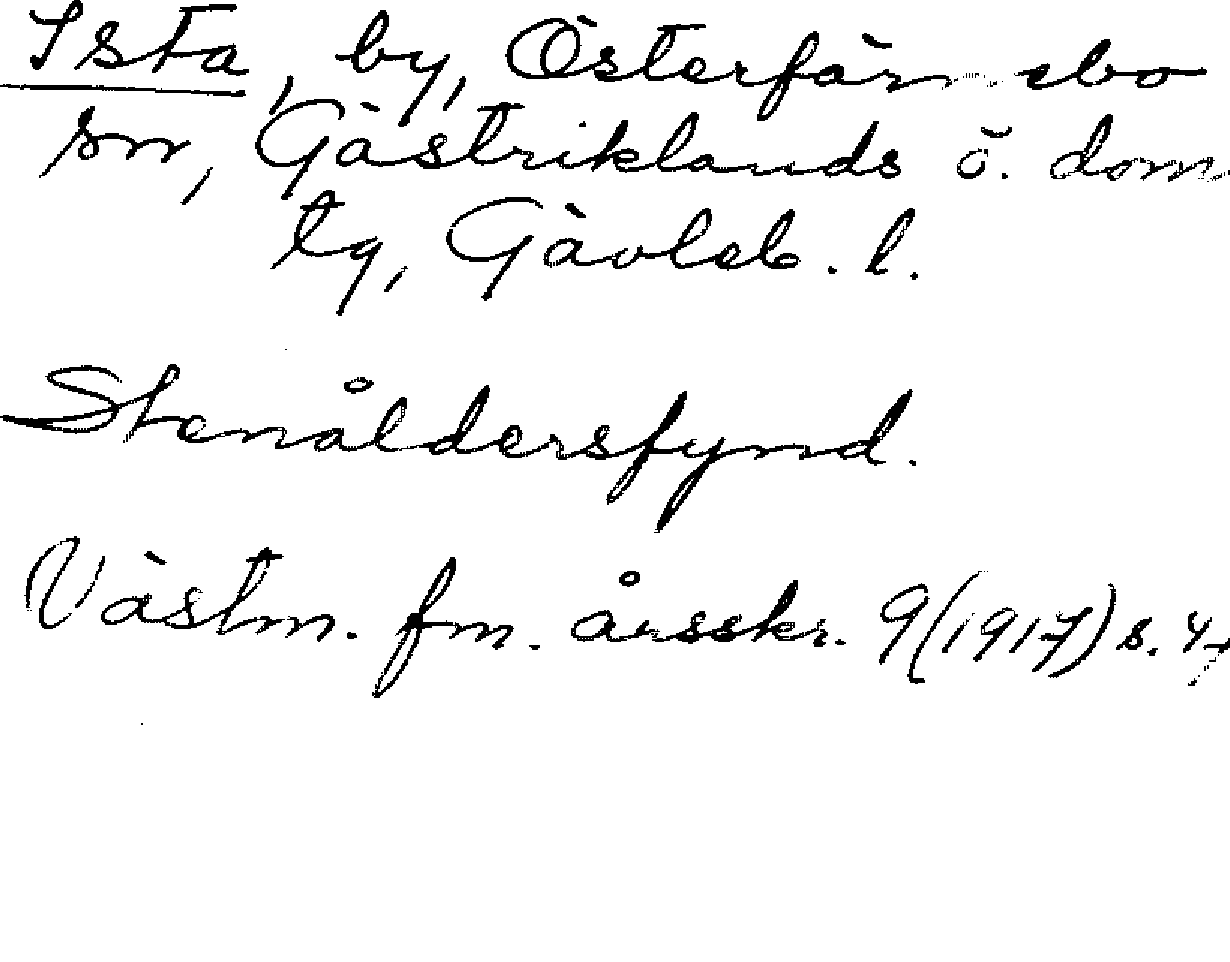 Ista, by, Österfärnebo
sn, Gästriklands ö. dom
tg, Gävleb. l.
Stenåldersfynd.
Västm. fm. årsskr. 9 (1917) s. 47